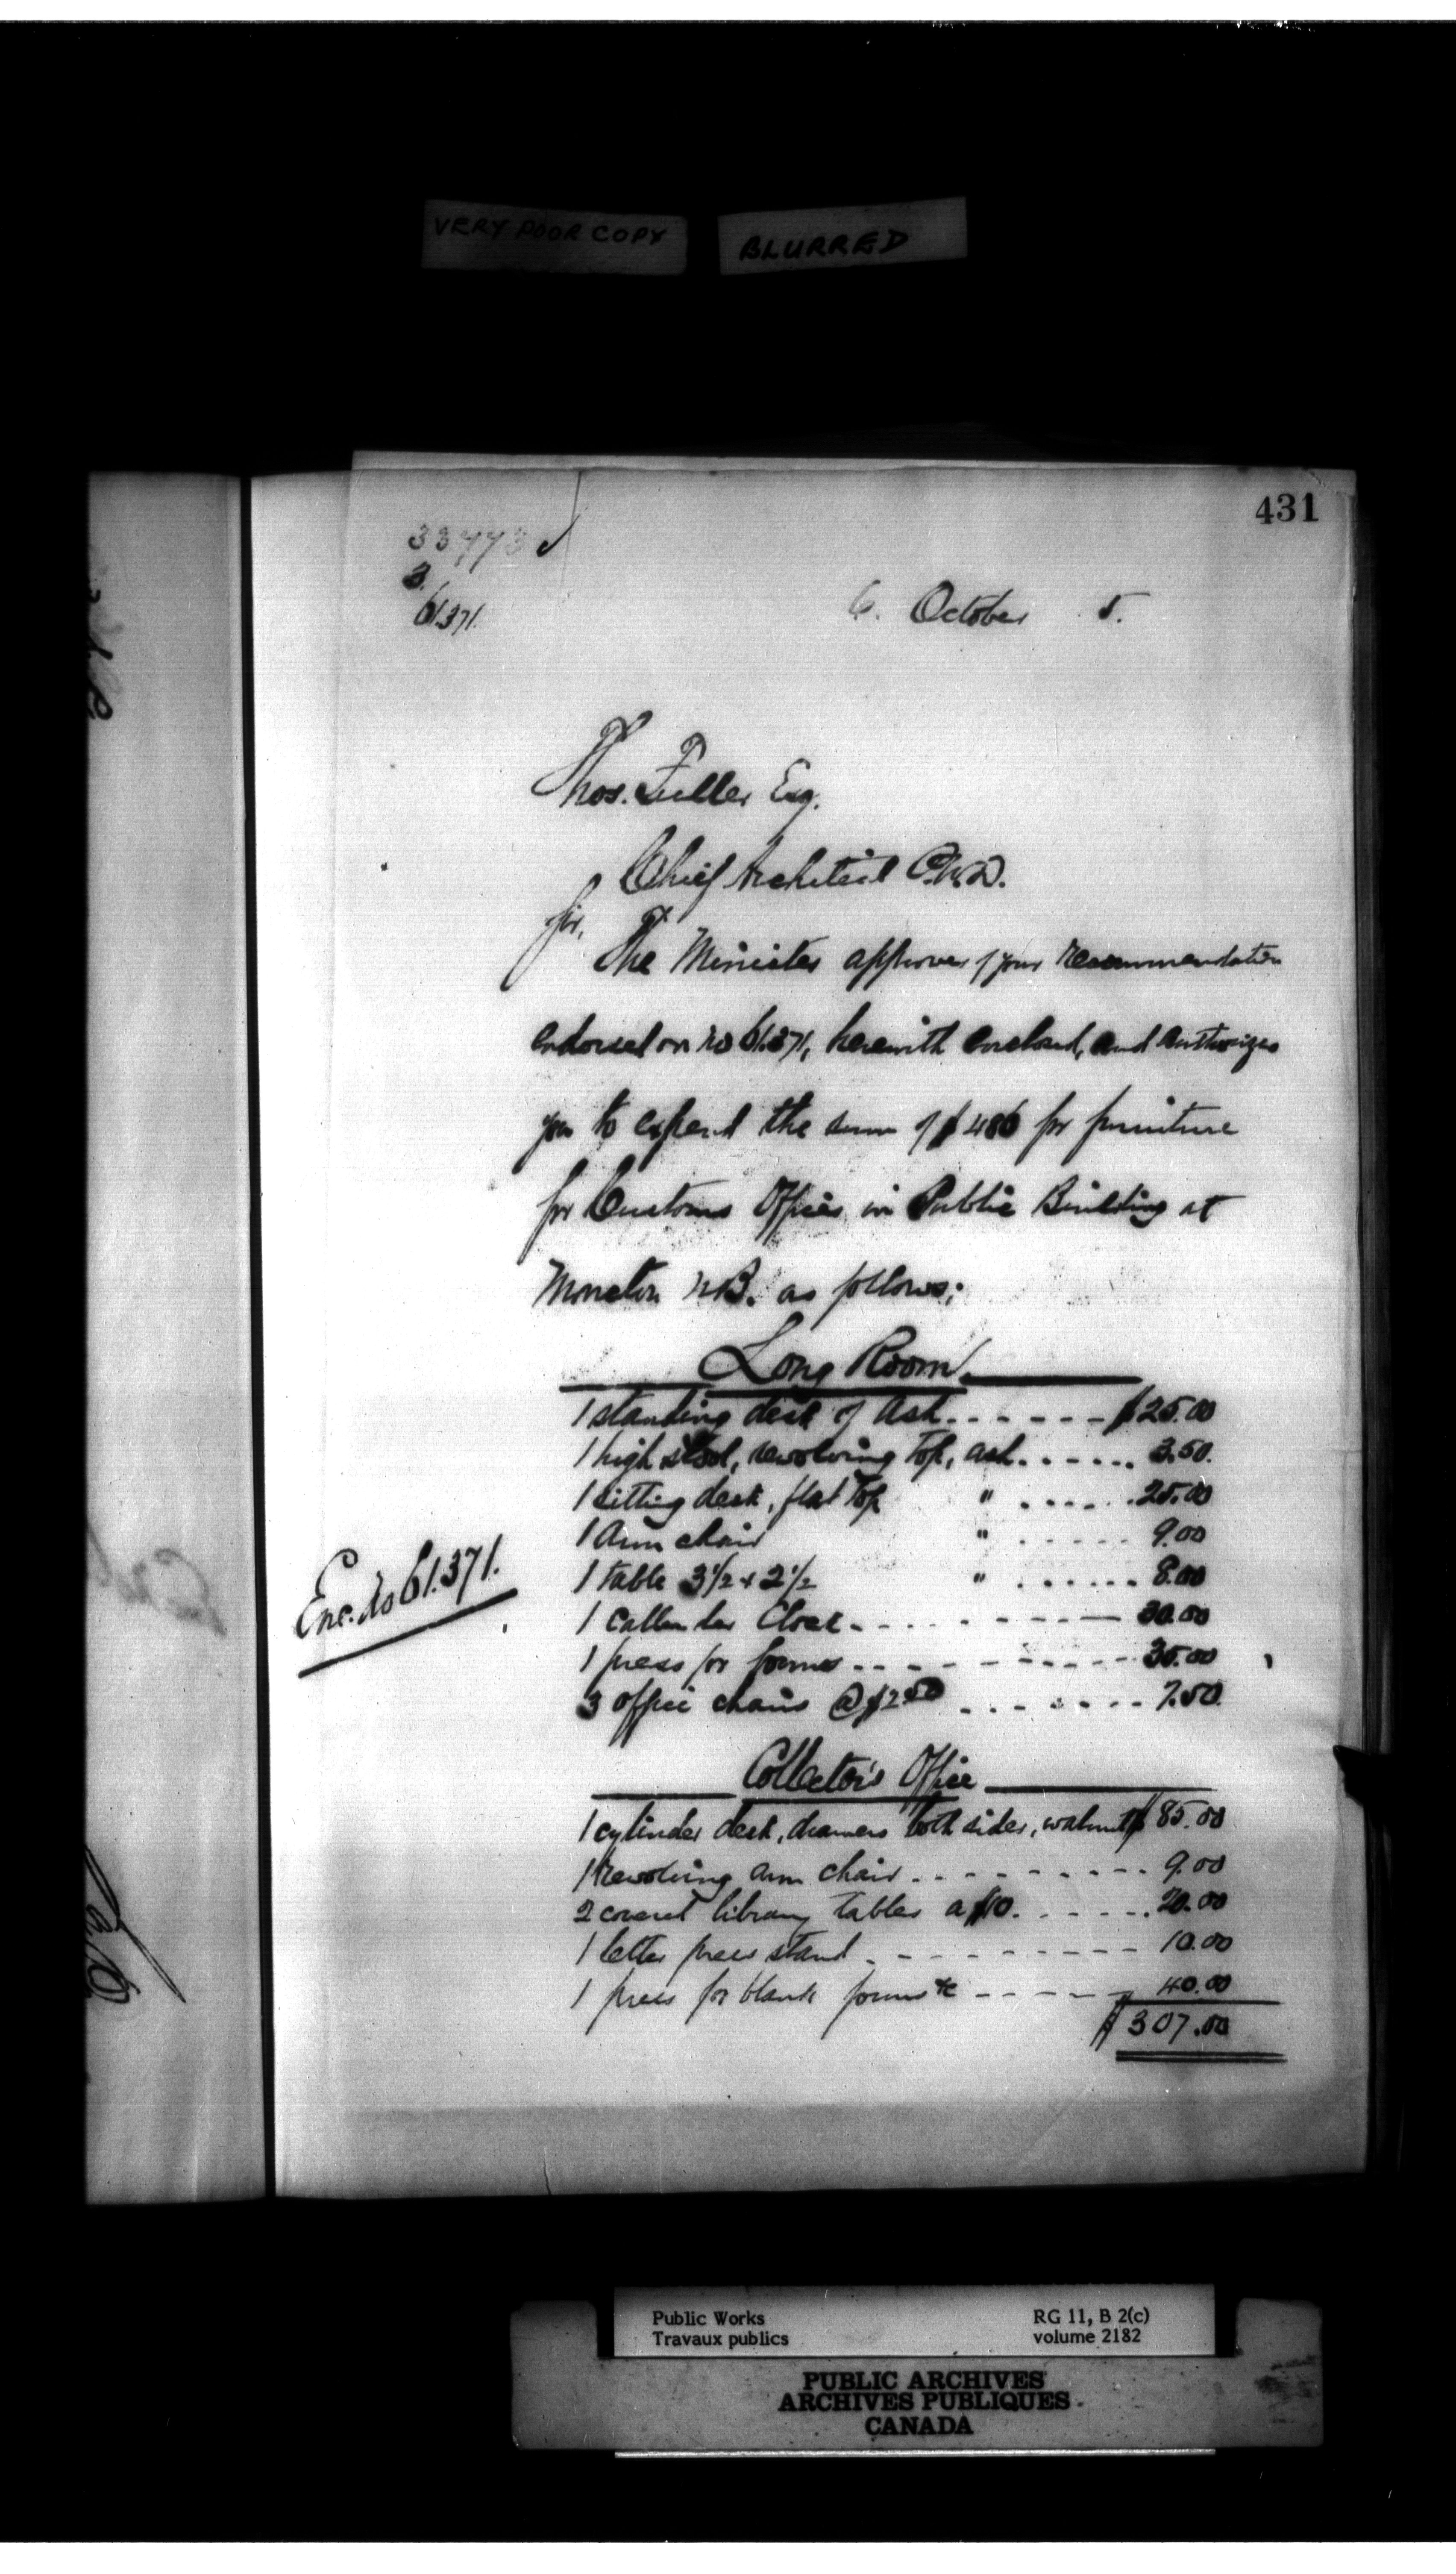 VERY POOR COPY
BLURRED
431
33443
3.
61371.
6. October 5.
Thos. Fuller Esq.
Chief Architect P.W.D.
Sir,
The Minister approves of your recommendation
endorsed on No 61.371, herewith enclosed, and authorizes
you to expend the sum of $486 for furniture
for Customs Offices in Public Building at
Moncton N.B. as follows;
Long Room.
1 standing desk of Ash. $25.00
1 high stool, revolving top, ash 3.50.
1 sitting desk, flat top " 25.00
1 Arm chair " 9.00
1 table 3½ x 2½ " 8.00
1 Callender Clock 30.00
1 press for forms 35.00
3 office chairs @ $2.50 7.50.
Enc. No 61.371.
Collector's Office
1 cylinder desk, drawers both sides, walnut $85.00
1 revolving arm chair 9.00
2 covered library tables a $10. 20.00
1 letter press stand 10.00
1 press for blank forms &c 40.00
$307.00
Public Works RG 11, B 2(c)
Travaux publics volume 2182
PUBLIC ARCHIVES
ARCHIVES PUBLIQUES
CANADA